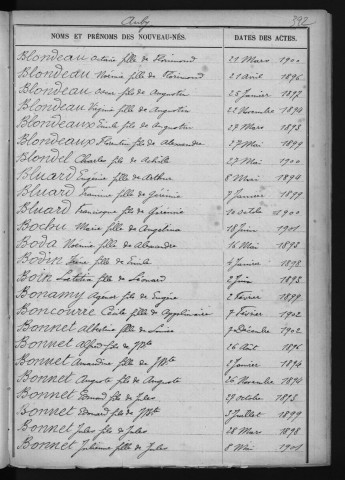 Auby
392
NOMS ET PRÉNOMS DES NOUVEAU-NÉS.
DATES DES ACTES.
Blondeau Octavie fille de Florimond 29 Mars 1900
Blondeau Noémie fille de Florimond 21 Avril 1896
Blondeau fille de Augustin 25 Janvier 1892
Blondeau Virginie fille de Augustin 22 Novembre 1894
Blondeaux Emile fils de Augustin 27 Mars 1893
Blondeaux Florentin fils de Alexandre 27 Mai 1899
Blondel Charles fils de Achille 27 Mai 1900
Bluard Eugénie fille de Arthur 8 Mai 1894
Bluard fille de Jérémie 7 Janvier 1899
Bluard fils de Jérémie 10 octobre 1900
Bochu Marie fille de Angelina 18 Juin 1901
Boda Noémie fille de Alexandre 16 Mai 1893
Bodin fille de Emile 4 Janvier 1898
Boin Laetitia fille de Léonard 2 Juin 1893
Bonamy Agnès fille de Eugène 2 Février 1899
Boncourre Cécile fille de Appolinaire 7 Février 1902
Bonnet Albertine fille de 7 Décembre 1902
Bonnet Alfred fils de J Bte 26 Août 1896
Bonnet Amandine fille de J Bte 2 Janvier 1894
Bonnet Auguste fils de Auguste 26 Novembre 1894
Bonnet Edmond fils de Jules 29 octobre 1893
Bonnet Edouard fils de J Bte 3 Juillet 1899
Bonnet Jules fils de Jules 28 Mars 1898
Bonnet Julienne fille de Jules 8 Mai 1901